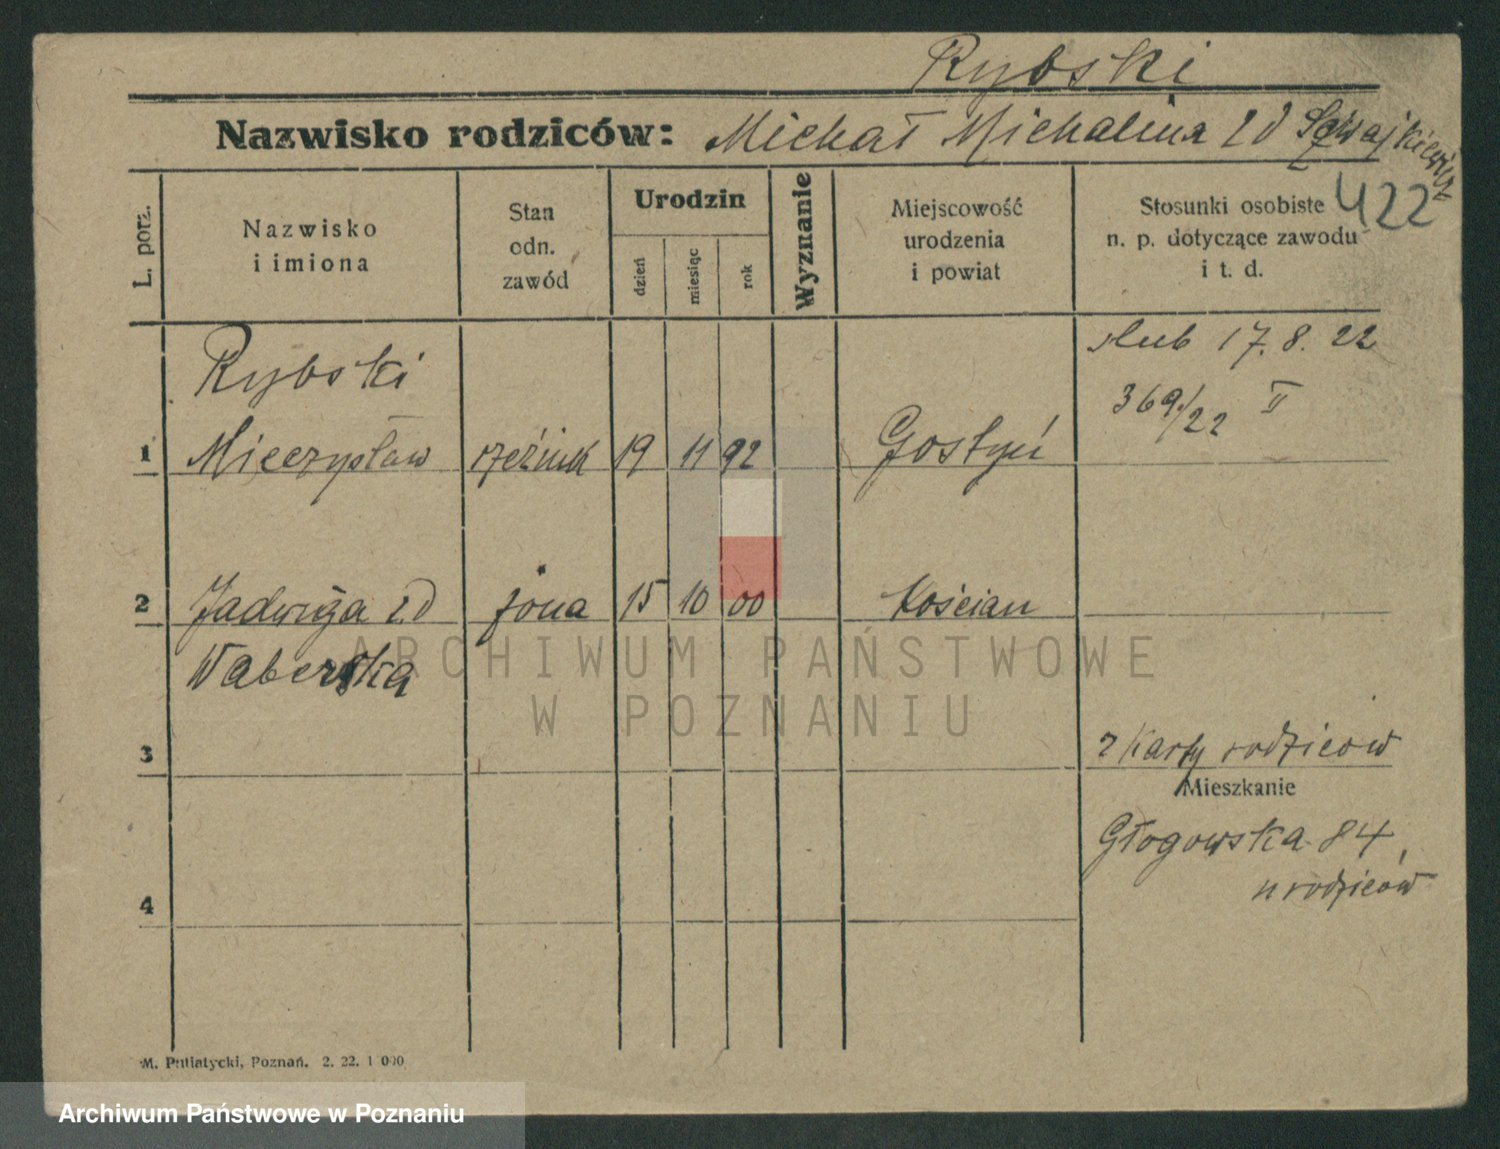 Rybski
Nazwisko rodziców: Michał Michalina zd
422
L. porz.
Nazwisko
i imiona
Stan
odn.
zawód
Urodzin
dzień
miesiąc
rok
Wyznanie
Miejscowość
urodzenia
i powiat
Stosunki osobiste
n. p. dotyczące zawodu
i t. d.
Rybski
1 Mieczysław rzeźnik 19 11 92 Gostyń
ślub 17. 8. 22
369/22 II
2 Jadwiga zd żona 15 10 00 Kościan
Waberska
3
z karty rodziców
Mieszkanie
Głogowska 84
u rodziców
4
M. Putiatycki, Poznań. 2. 22. 1 000
ARCHIWUM PAŃSTWOWE
W POZNANIU
Archiwum Państwowe w Poznaniu